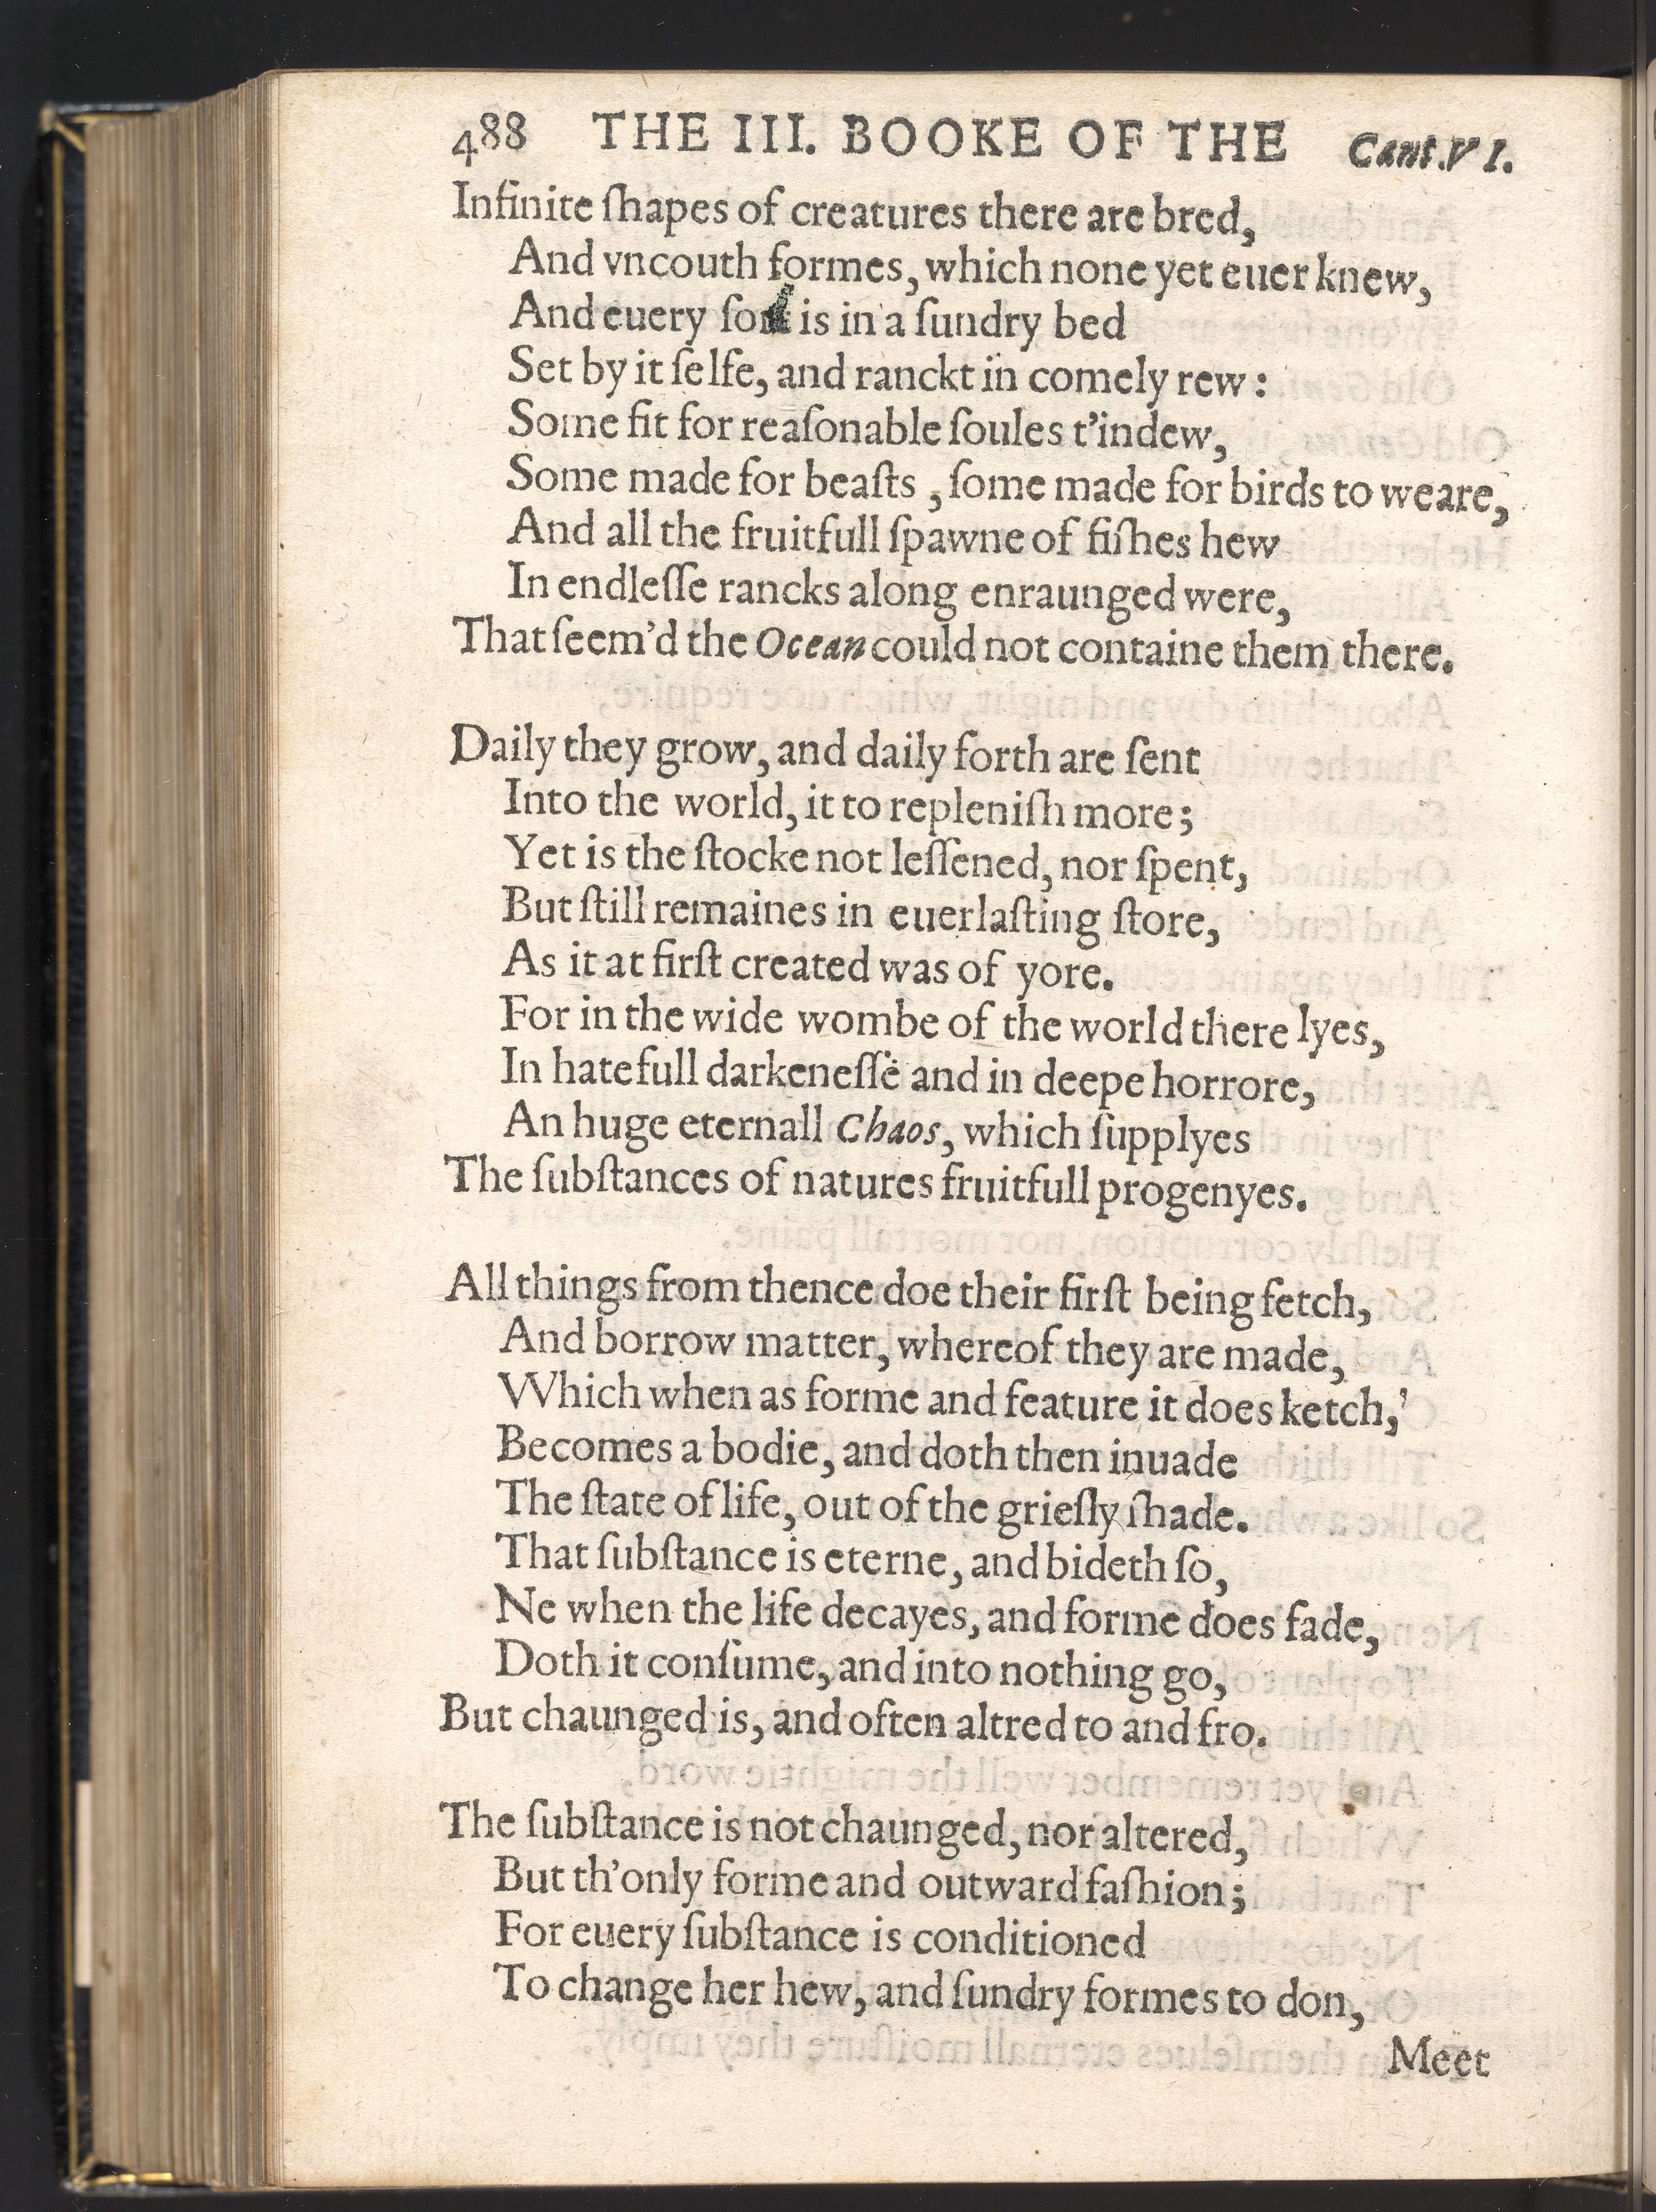 488 THE III. BOOKE OF THE Cant.VI.
Infinite ſhapes of creatures there are bred,
And vncouth formes, which none yet euer knew,
And euery ſort is in a ſundry bed
Set by it ſelfe, and ranckt in comely rew:
Some fit for reaſonable ſoules t'indew,
Some made for beaſts, ſome made for birds to weare,
And all the fruitfull ſpawne of fiſhes hew
In endleſſe rancks along enraunged were,
That ſeem'd the Ocean could not containe them there.
Daily they grow, and daily forth are ſent
Into the world, it to repleniſh more;
Yet is the ſtocke not leſſened, nor ſpent,
But ſtill remaines in euerlaſting ſtore,
As it at firſt created was of yore.
For in the wide wombe of the world there lyes,
In hatefull darkeneſſe and in deepe horrore,
An huge eternall Chaos, which ſupplyes
The ſubſtances of natures fruitfull progenyes.
All things from thence doe their firſt being fetch,
And borrow matter, whereof they are made,
Which when as forme and feature it does ketch,
Becomes a bodie, and doth then inuade
The ſtate of life, out of the grieſly ſhade.
That ſubſtance is eterne, and bideth ſo,
Ne when the life decayes, and forme does fade,
Doth it conſume, and into nothing go,
But chaunged is, and often altred to and fro.
The ſubſtance is not chaunged, nor altered,
But th'only forme and outward faſhion;
For euery ſubſtance is conditioned
To change her hew, and ſundry formes to don,
Meet